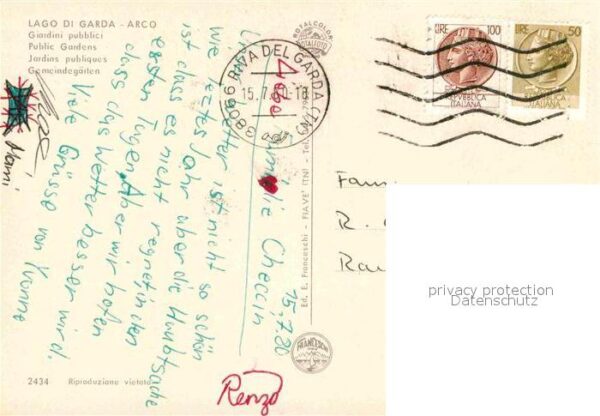 LAGO DI GARDA - ARCO
Giardini pubblici
Public Gardens
Jardins publiques
Gemeindegärten
38066 RIVA DEL GARDA (TN)
15.7.
ROTALCOLOR
ROTALFOTO
LIRE 100
LIRE 50
REPUBBLICA ITALIANA
ITALIANA
15.7.80
Familie Checcin
Wetter ist nicht so schön
letztes Jahr aber die Hauptsache
ist dass es nicht regnet, in den
ersten Tagen. Aber wir hoffen
dass das Wetter besser wird.
Viele Grüsse von Yvonne
Nonni
Renzo
Fam
R.
Ed. E. Franceschi - FIAVE' (TN) - Tel.
FRANCESCHI
2434 Riproduzione vietata
privacy protection
Datenschutz